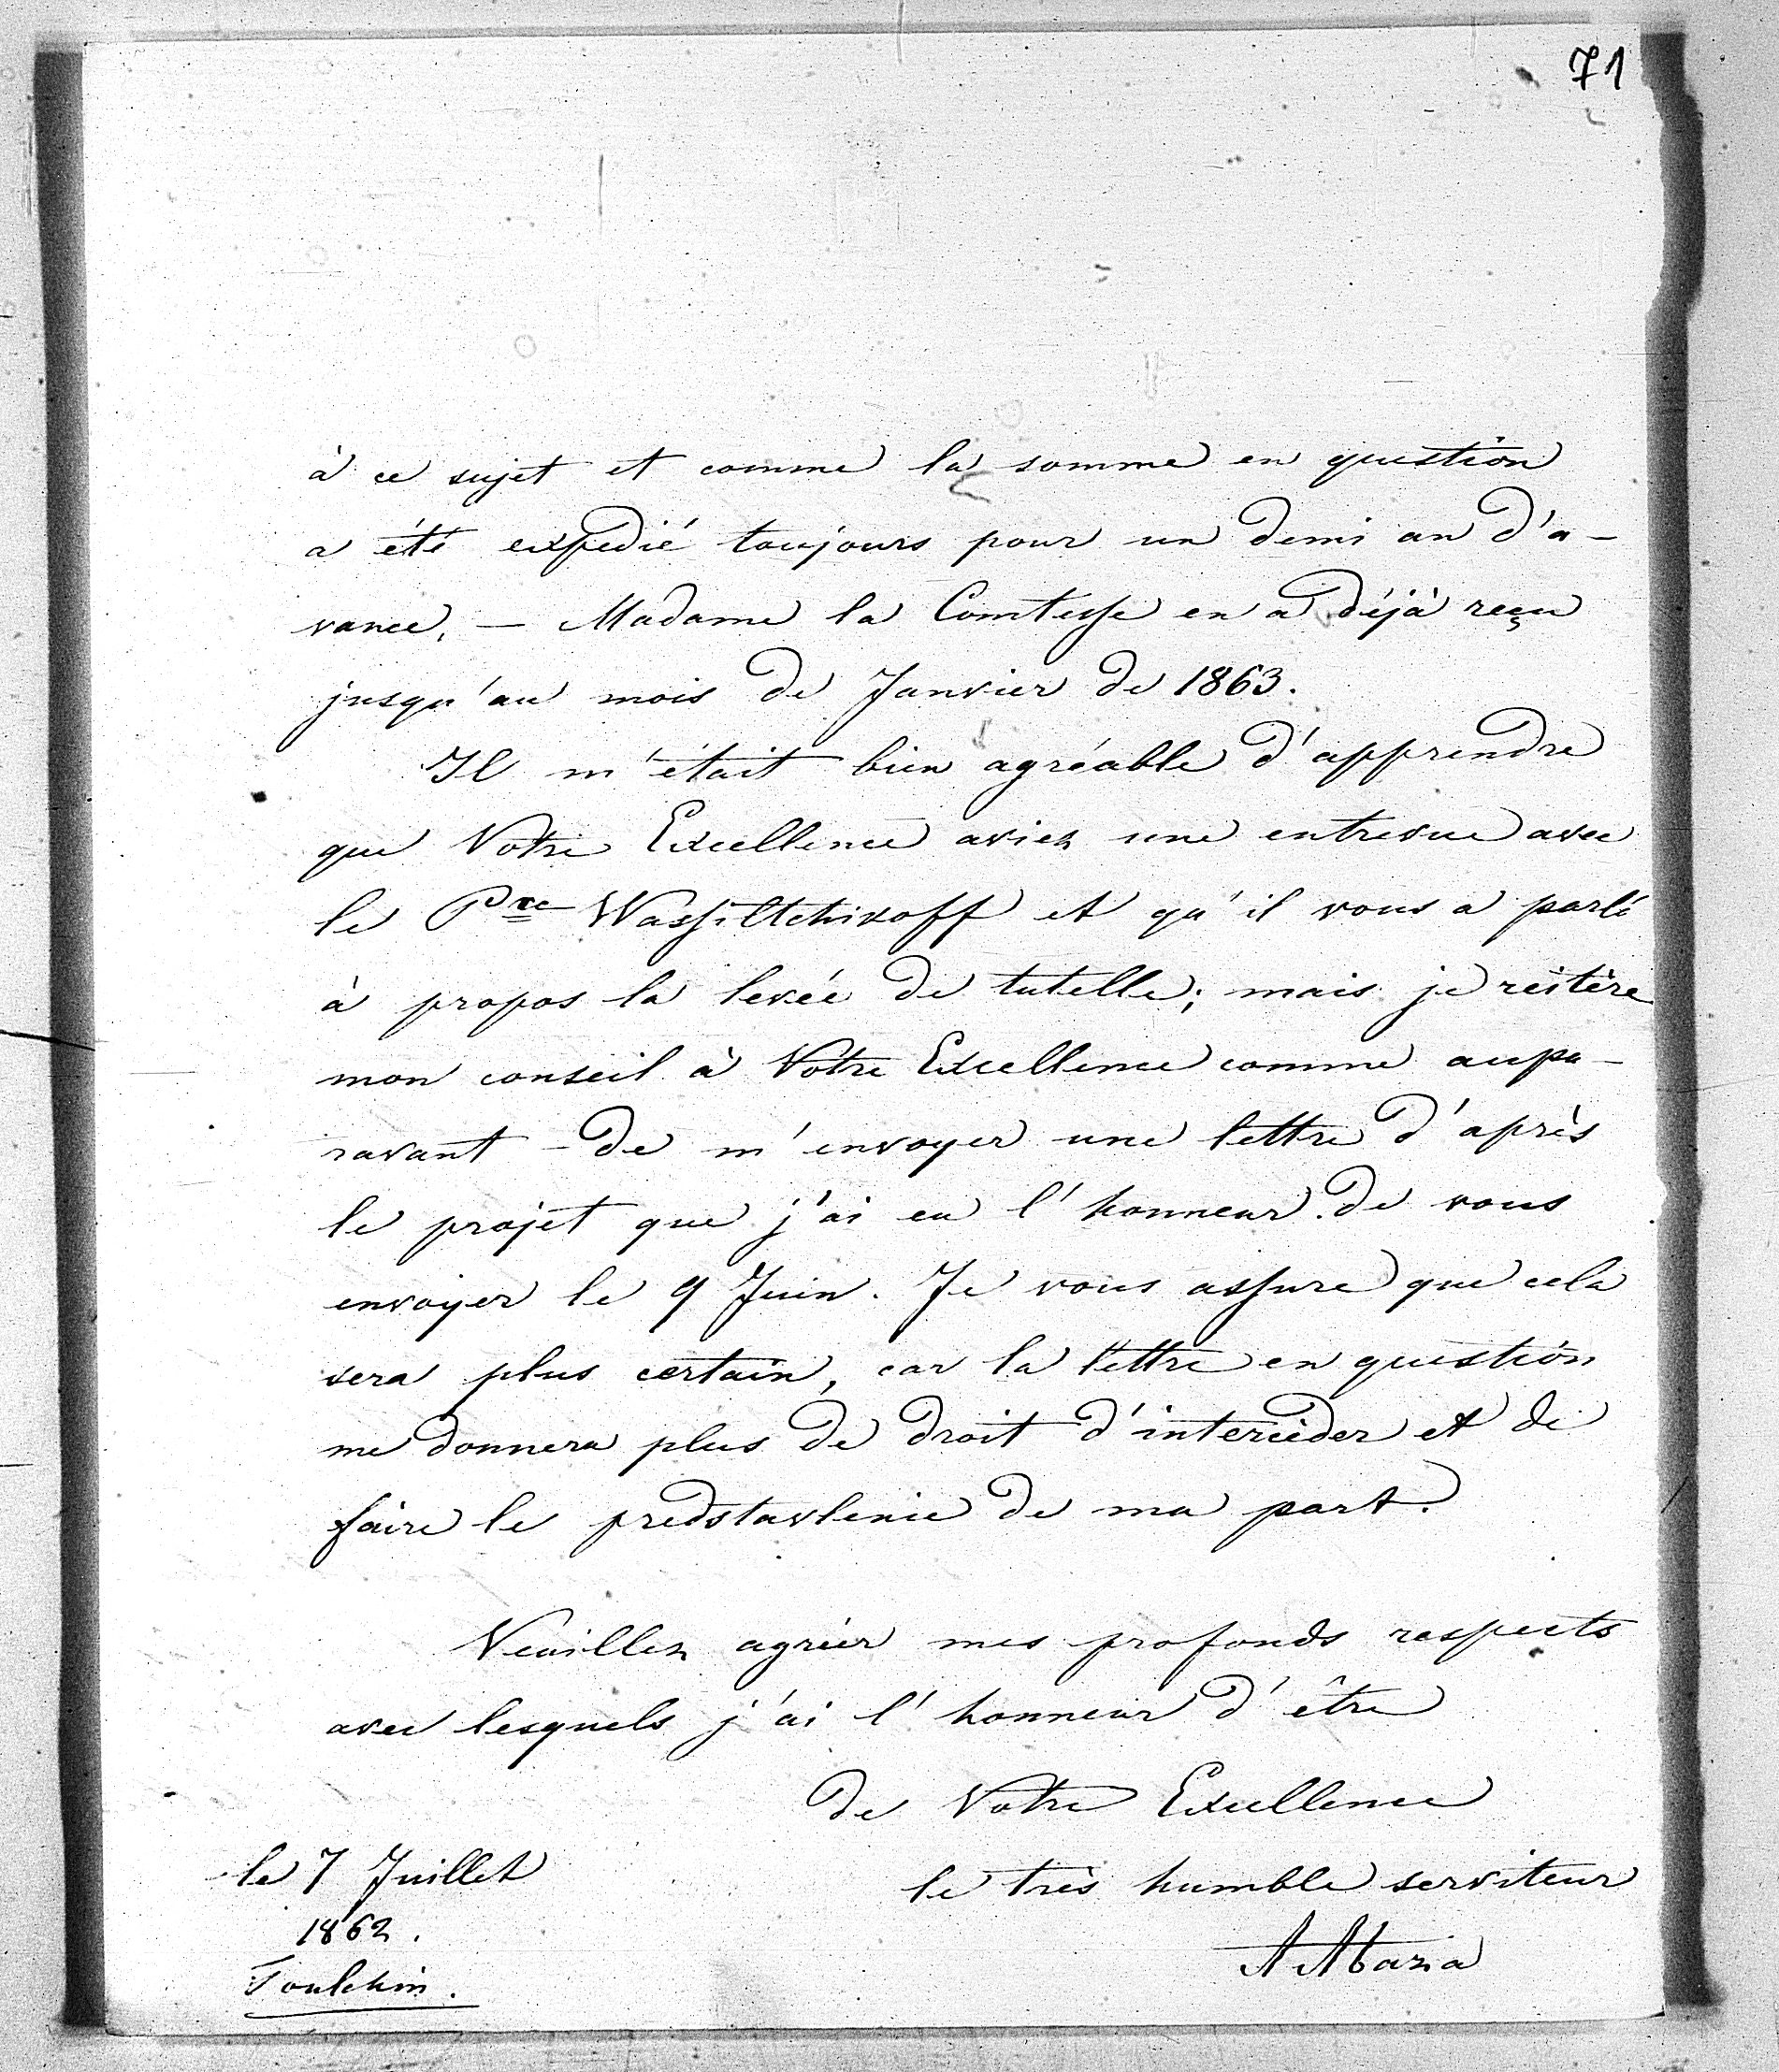 71
à ce sujet et comme la somme en question
a été expedié toujours pour un demi an d'a-
vance. — Madame la Comtesse en a déjà reçu
jusqu'au mois de Janvier de 1863.
Il m'était bien agréable d'apprendre
que Votre Excellence aviez une entrevue avec
le Pce Wassiltchikoff et qu'il vous a parlé
à propos la levée de tutelle; mais je réitère
mon conseil à Votre Excellence comme aupa-
ravant - de m'envoyer une lettre d'après
le projet que j'ai eu l'honneur de vous
envoyer le 9 Juin. Je vous assure que cela
sera plus certain, car la lettre en question
me donnera plus de droit d'intercéder et de
faire le predstavlenie de ma part.
Veuillez agréer mes profonds respects
avec lesquels j'ai l'honneur d'être
de Votre Excellence
le très humble serviteur
A Abaza
le 7 Juillet
1862.
Toulchin.